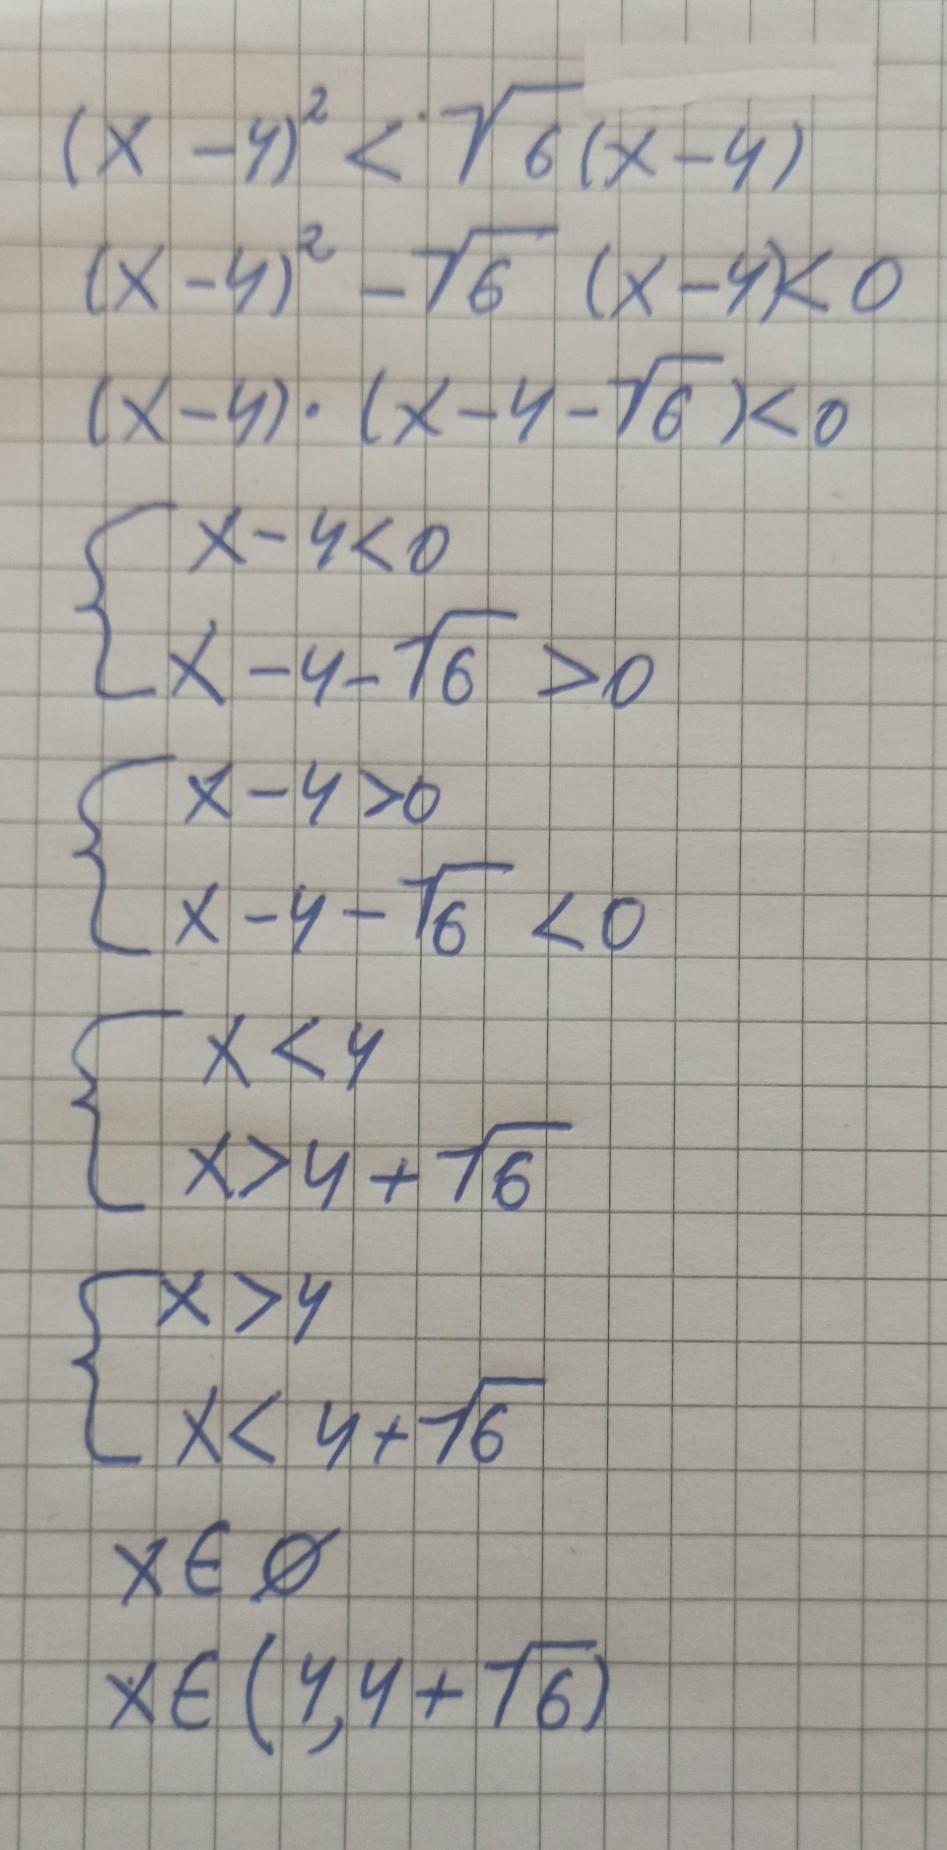 (x - 4)² < √6(x - 4)
(x - 4)² - √6 (x - 4) < 0
(x - 4) · (x - 4 - √6) < 0
{ x - 4 < 0
x - 4 - √6 > 0
{ x - 4 > 0
x - 4 - √6 < 0
{ x < 4
x > 4 + √6
{ x > 4
x < 4 + √6
x ∈ ∅
x ∈ (4, 4 + √6)